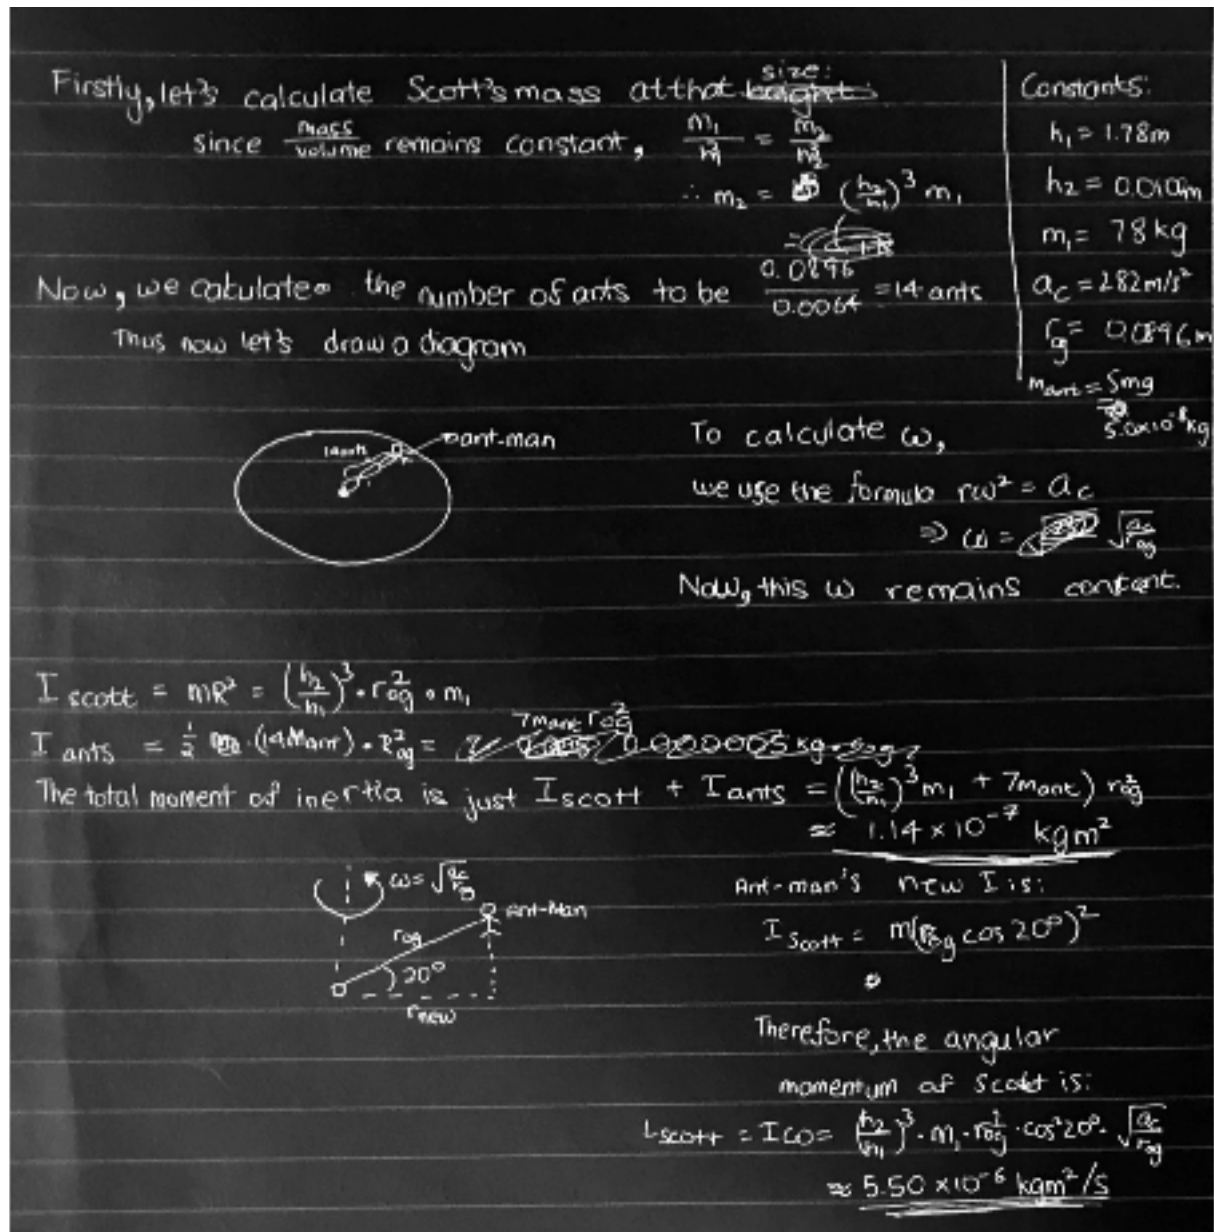 Firstly, let's calculate Scott's mass at that size:
since mass/volume remains constant, m₁/h₁³ = m₂/h₂³
∴ m₂ = (h₂/h₁)³ m₁
Now, we calculate the number of ants to be 0.0896/0.0064 = 14 ants
Thus now let's draw a diagram
Constants:
h₁ = 1.78m
h₂ = 0.010m
m₁ = 78 kg
a_c = 282 m/s²
r_og = 0.0896 m
m_ant = 5mg
5.0×10⁻⁶ kg
14 ants
ant-man
To calculate ω,
we use the formula rω² = a_c
⇒ ω = √(a_c/r_og)
Now, this ω remains contant.
I scott = mR² = (h₂/h₁)³ • r_og² • m₁
I ants = ½ • (14 M_ant) • R_og² = 7m_ant r_og²
The total moment of inertia is just I scott + I ants = ((h₂/h₁)³ m₁ + 7m_ant) r_og²
≈ 1.14 × 10⁻⁷ kg m²
ω = √(a_c/r_og)
Ant-Man
r_og
20°
r_new
Ant-man's new I is:
I scott = m(r_og cos 20°)²
Therefore, the angular
momentum of scott is:
L scott = Iω = (h₂/h₁)³ • m₁ • r_og² • cos² 20° • √(a_c/r_og)
≈ 5.50 × 10⁻⁶ kgm²/s